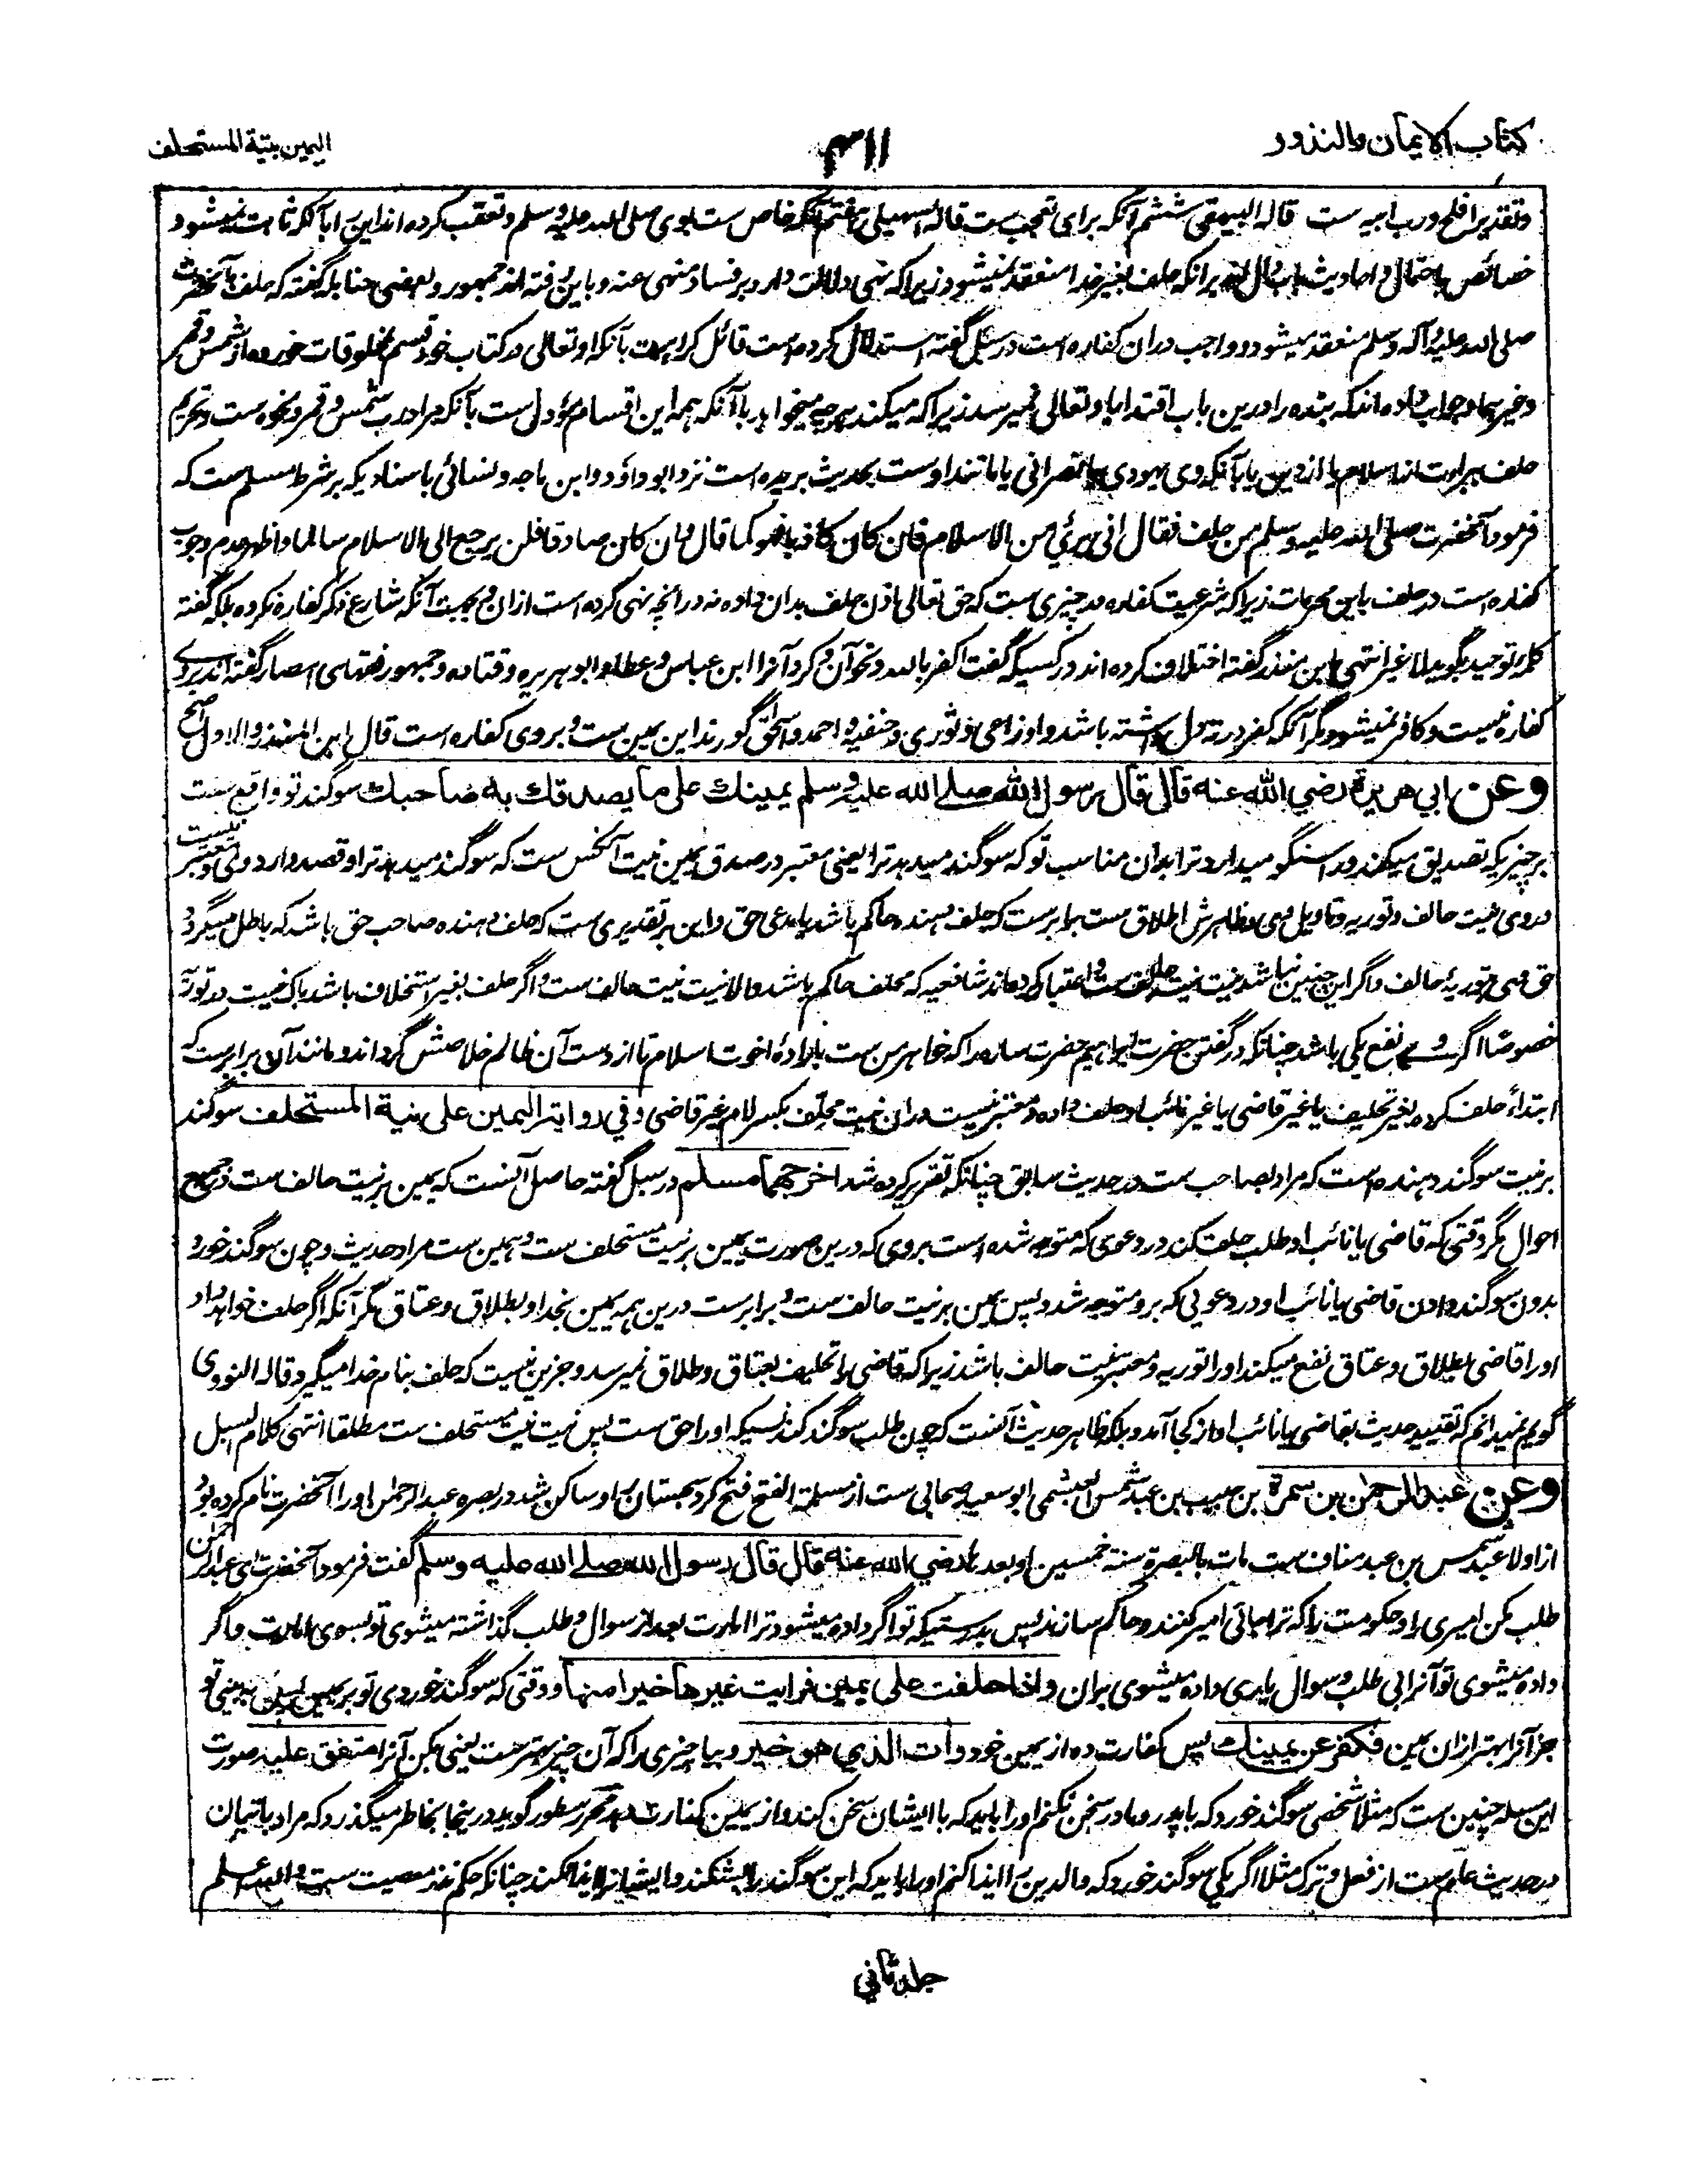 كتاب الايمان والنذور
۳۱۱
اليمين بنية المستحلف
وتقدير افلح ورب ابيه ست قاله البيهقي ششم آنكه براى تعجب ست قاله السهيلي هفتم آنكه خاص ست بوى صلى الله عليه وسلم وتعقب كرده اند اين را بآنكه ثابت نميشود
خصائص باحتمال و احاديث باب دال اند برانكه حلف بغير خدا منعقد نميشود زيرا كه نهى دلالت دارد بر فساد منهى عنه و باين رفته اند جمهور و بعضى حنابله گفته كه حلف بآنحضرت
صلى الله عليه وآله وسلم منعقد ميشود و واجب دران كفاره است در سبل گفته استدلال كرده است قائل كراهت بآنكه او تعالى در كتاب خود قسم بمخلوقات خورده از شمس و قمر
و غيرهما و جواب داده اند كه بنده را درين باب اقتدا باو تعالى نميرسد زيرا كه ميكند هرچه ميخواهد با آنكه همه اين اقسام مؤول ست بآنكه مراد رب شمس و قمر و نحوه ست و تحريم
حلف ببراءت از اسلام يا از دين يا بآنكه وى يهودي يا نصرانى يا مانند اوست بحديث بريده است نزد ابو داؤد و ابن ماجه و نسائى باسناديكه بر شرط مسلم ست كه
فرمود آنحضرت صلى الله عليه وسلم من حلف فقال انى برئ من الاسلام فان كان كاذبا فهو كما قال و ان كان صادقا فلن يرجع الى الاسلام سالما و اظهر عدم وجوب
كفاره است در حلف باين محرمات زيرا كه شرعيت كفاره در چيزى ست كه حق تعالى اذن حلف بدان داده نه در انچه نهى كرده است ازان و بجهت آنكه شارع ذكر كفاره نكرده بلكه گفته
كلمه توحيد بگويد لا غير انتهى ابن منذر گفته اختلاف كرده اند در كسيكه گفت اكفر بالله و نحو آن و كرد آنرا ابن عباس و عطا و ابو هريره و قتاده و جمهور فقهاى امصار گفته اند بروے
كفاره نيست و كافر نميشود مگر آنكه كفر در ته دل داشته باشد و اوزاعى و ثورى و حنفيه و احمد و اسحق گويند اين يمين ست و بروى كفاره است قال ابن المنذر والاول اصح
وعن ابي هريرة رضي الله عنه قال قال رسول الله صلے الله عليه وسلم يمينك على ما يصدقك به صاحبك سوگند تو واقع ست
بر چيزيكه تصديق ميكند و راستگو ميدارد ترا بدان مناسب تو كه سوگند ميدهد ترا يعنى معتبر در صدق يمين نيت آنكس ست كه سوگند ميدهد ترا و قصد دارد ولى و معتبر نيست
دروى نيت حالف و توريه و تاويل وى و ظاهرش اطلاق ست برابر ست كه حلف دهنده حاكم باشد يا مدعى حق و اين بر تقديرى ست كه حلف دهنده صاحب حق باشد كه باطل ميگردد
حق وى بتوريهٔ حالف و اگر اين چنين نباشد نيت نيت حالف ست و اعتبار كرده اند شافعيه كه محلف حاكم باشد والا نيت نيت حالف ست و اگر حلف بغير استحلاف باشد باك نيست در توريه
خصوصا اگر دروے نفع يكى باشد چنانكه در گفتن حضرت ابراهيم حضرت ساره را كه خواهر من ست بارادهٔ اخوت اسلام تا از دست آن ظالم خلاصش گرداند و مانند آن برابر ست كه
ابتداءً حلف كرده بغير تحليف يا غير قاضى يا غير نائب او حلف داده و معتبر نيست دران نيت محلف بكسر لام غير قاضى وفي رواية اليمين على نية المستحلف سوگند
بر نيت سوگند دهنده است كه مراد بصاحب ست در حديث سابق چنانكه تقرير كرده شد اخرجهما مسلم در سبل گفته حاصل آنست كه يمين بر نيت حالف ست در جميع
احوال مگر وقتى كه قاضى يا نائب او طلب حلف كند در دعوى كه متوجه شده است بروى كه درين صورت يمين بر نيت مستحلف ست و همين ست مراد حديث و چون سوگند خورد
بدون سوگند دادن قاضى يا نائب او در دعوئى كه برو متوجه شد پس يمين بر نيت حالف ست و برابر ست درين همه يمين بخدا و بطلاق و عتاق مگر آنكه اگر حلف خواهد داد
او را قاضى بطلاق و عتاق نفع ميكند او را توريه و معتبر نيت حالف باشد زيرا كه قاضى را تحليف بعتاق و طلاق نميرسد و جزين نيست كه حلف بنام خدا ميگيرد قاله النووى
گويم نميدانم كه تقييد حديث بقاضى يا نائب او از كجا آمد و بلكه ظاهر حديث آنست كه چون طلب سوگند كند كسيكه او را حق ست پس نيت نيت مستحلف ست مطلقا انتهى كلام السبل
وعن عبد الرحمن بن سمرة بن حبيب بن عبد شمس العبشمى ابو سعيد صحابى ست از مسلمة الفتح فتح كرد سجستان را و ساكن شد در بصره عبد الرحمن او را آنحضرت نام كرده بود
از اولاد عبد شمس بن عبد مناف ست مات بالبصرة سنة خمسين او بعدها رضي الله عنه قال قال رسول الله صلے الله عليه وسلم گفت فرمود آنحضرت اى عبد الرحمن
طلب مكن اميرى را و حكومت را كه ترا بجائى امير كنند و حاكم سازند پس بدرستيكه تو اگر داده ميشود ترا امارت بعد از سوال و طلب گذاشته ميشوى تو بسوى امارت و اگر
داده ميشوى تو آنرا بى طلب و سوال يارى داده ميشوى بران واذا حلفت على يمين فرايت غيرها خيرا منها و وقتى كه سوگند خوردى تو بر يمين پس بينى تو
جز آنرا بهتر ازان يمين فكفر عن يمينك پس كفارت ده از يمين خود وأت الذي هو خير و بيا چيزى را كه آن چيز بهتر ست يعنى بكن آنرا متفق عليه صورت
اين مسئله چنين ست كه مثلا شخصى سوگند خورد كه با پدر و مادر سخن نكنم او را بايد كه با ايشان سخن كند و از يمين كفارت دهد محرر سطور گويد در ينجا بخاطر ميگذرد كه مراد باتيان
در حديث عام ست از فعل و ترك مثلا اگر يكى سوگند خورد كه والدين را ايذا كنم او را بايد كه اين سوگند را بشكند و ايشانرا ايذا نكند چنانكه حكم نذر معصيت ست والله اعلم
جلد ثاني